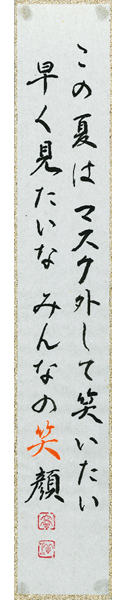 この夏はマスク外して笑いたい
早く見たいなみんなの笑顔